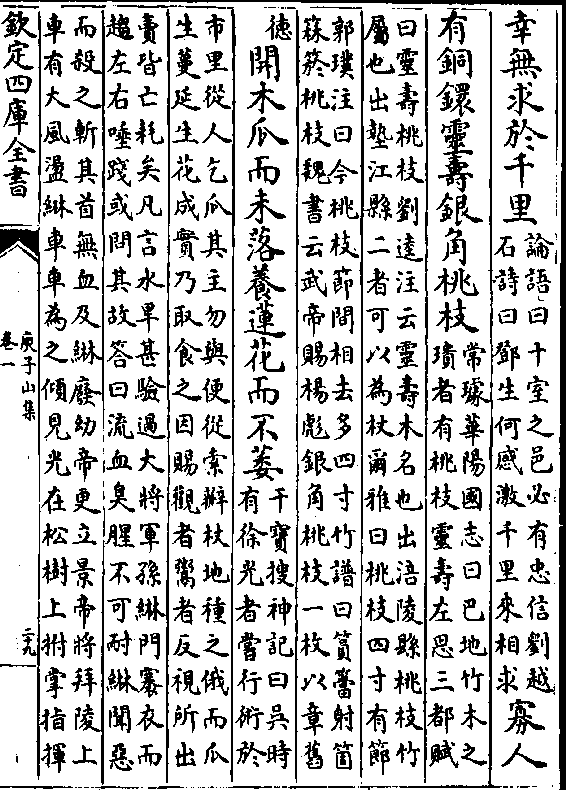 幸無求於千里論語曰十室之邑必有忠信劉越
石詩曰鄧生何感激千里來相求寡人
有銅鐶靈壽銀角桃枝常璩華陽國志曰巴地竹木之
瓆者有桃枝靈壽左思三都賦
曰靈壽桃枝劉逵注云靈壽木名也出涪陵縣桃枝竹
屬也出墊江縣二者可以為杖爾雅曰桃枝四寸有節
郭璞注曰今桃枝節間相去多四寸竹譜曰篔簹射筒
箖箊桃枝魏書云武帝賜楊彪銀角桃枝一枚以章舊
德開木瓜而未落養蓮花而不萎干寶搜神記曰吳時
有徐光者嘗行術於
市里從人乞瓜其主勿與便從索瓣杖地種之俄而瓜
生蔓延生花成實乃取食之因賜觀者鬻者反視所出
賣皆亡耗矣凡言水旱甚驗過大將軍孫綝門褰衣而
趨左右唾踐或問其故答曰流血臭腥不可耐綝聞惡
而殺之斬其首無血及綝廢幼帝更立景帝將拜陵上
車有大風盪綝車車為之傾見光在松樹上拊掌指揮
欽定四庫全書
庾子山集
卷一
二十九